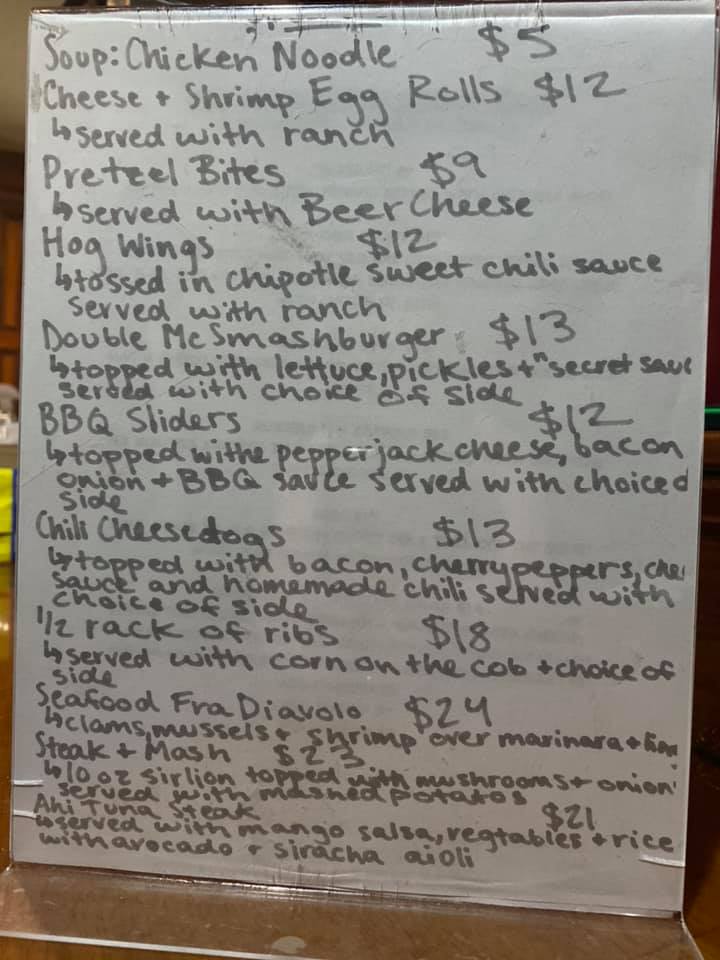 Soup: Chicken Noodle $5
Cheese + Shrimp Egg Rolls $12
↳served with ranch
Pretzel Bites $9
↳served with Beer Cheese
Hog Wings $12
↳tossed in chipotle sweet chili sauce
served with ranch
Double McSmashburger $13
↳topped with lettuce, pickles + "secret sauc
served with choice of side
BBQ Sliders $12
↳topped withe pepperjack cheese, bacon
onion + BBQ sauce served with choice o
side
Chili Cheesedogs $13
↳topped with bacon, cherrypeppers, che
sauce and homemade chili served with
choice of side
1/2 rack of ribs $18
↳served with corn on the cob + choice of
side
Seafood Fra Diavolo $24
↳clams, mussels + shrimp over marinara +
Steak + Mash $23
↳10 oz sirlion topped with mushrooms + onion
served with mashed potatos
Ahi Tuna Steak $21
↳served with mango salsa, vegtables + rice
with avocado + siracha aioli